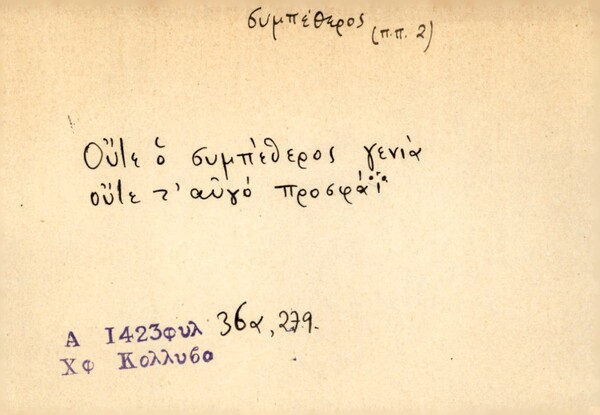 συμπέθερος
(π.π. 2)
Οὔτε ὁ συμπέθερος γενιὰ
οὔτε τ' αὐγό προσφάϊ
Α 1423φυλ 36α, 279.
Χφ Κολλυβα